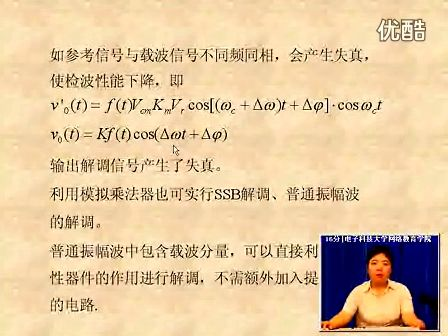 优酷
如参考信号与载波信号不同频同相，会产生失真，
使检波性能下降，即
v'₀(t) = f(t)V_cm K_m V_r cos[(ω_c + Δω)t + Δφ]·cos ω_c t
v₀(t) = Kf(t)cos(Δωt + Δφ)
输出解调信号产生了失真。
利用模拟乘法器也可实行SSB解调、普通振幅波
的解调。
普通振幅波中包含载波分量，可以直接利
性器件的作用进行解调，不需额外加入提
的电路.
电子科技大学网络教育学院